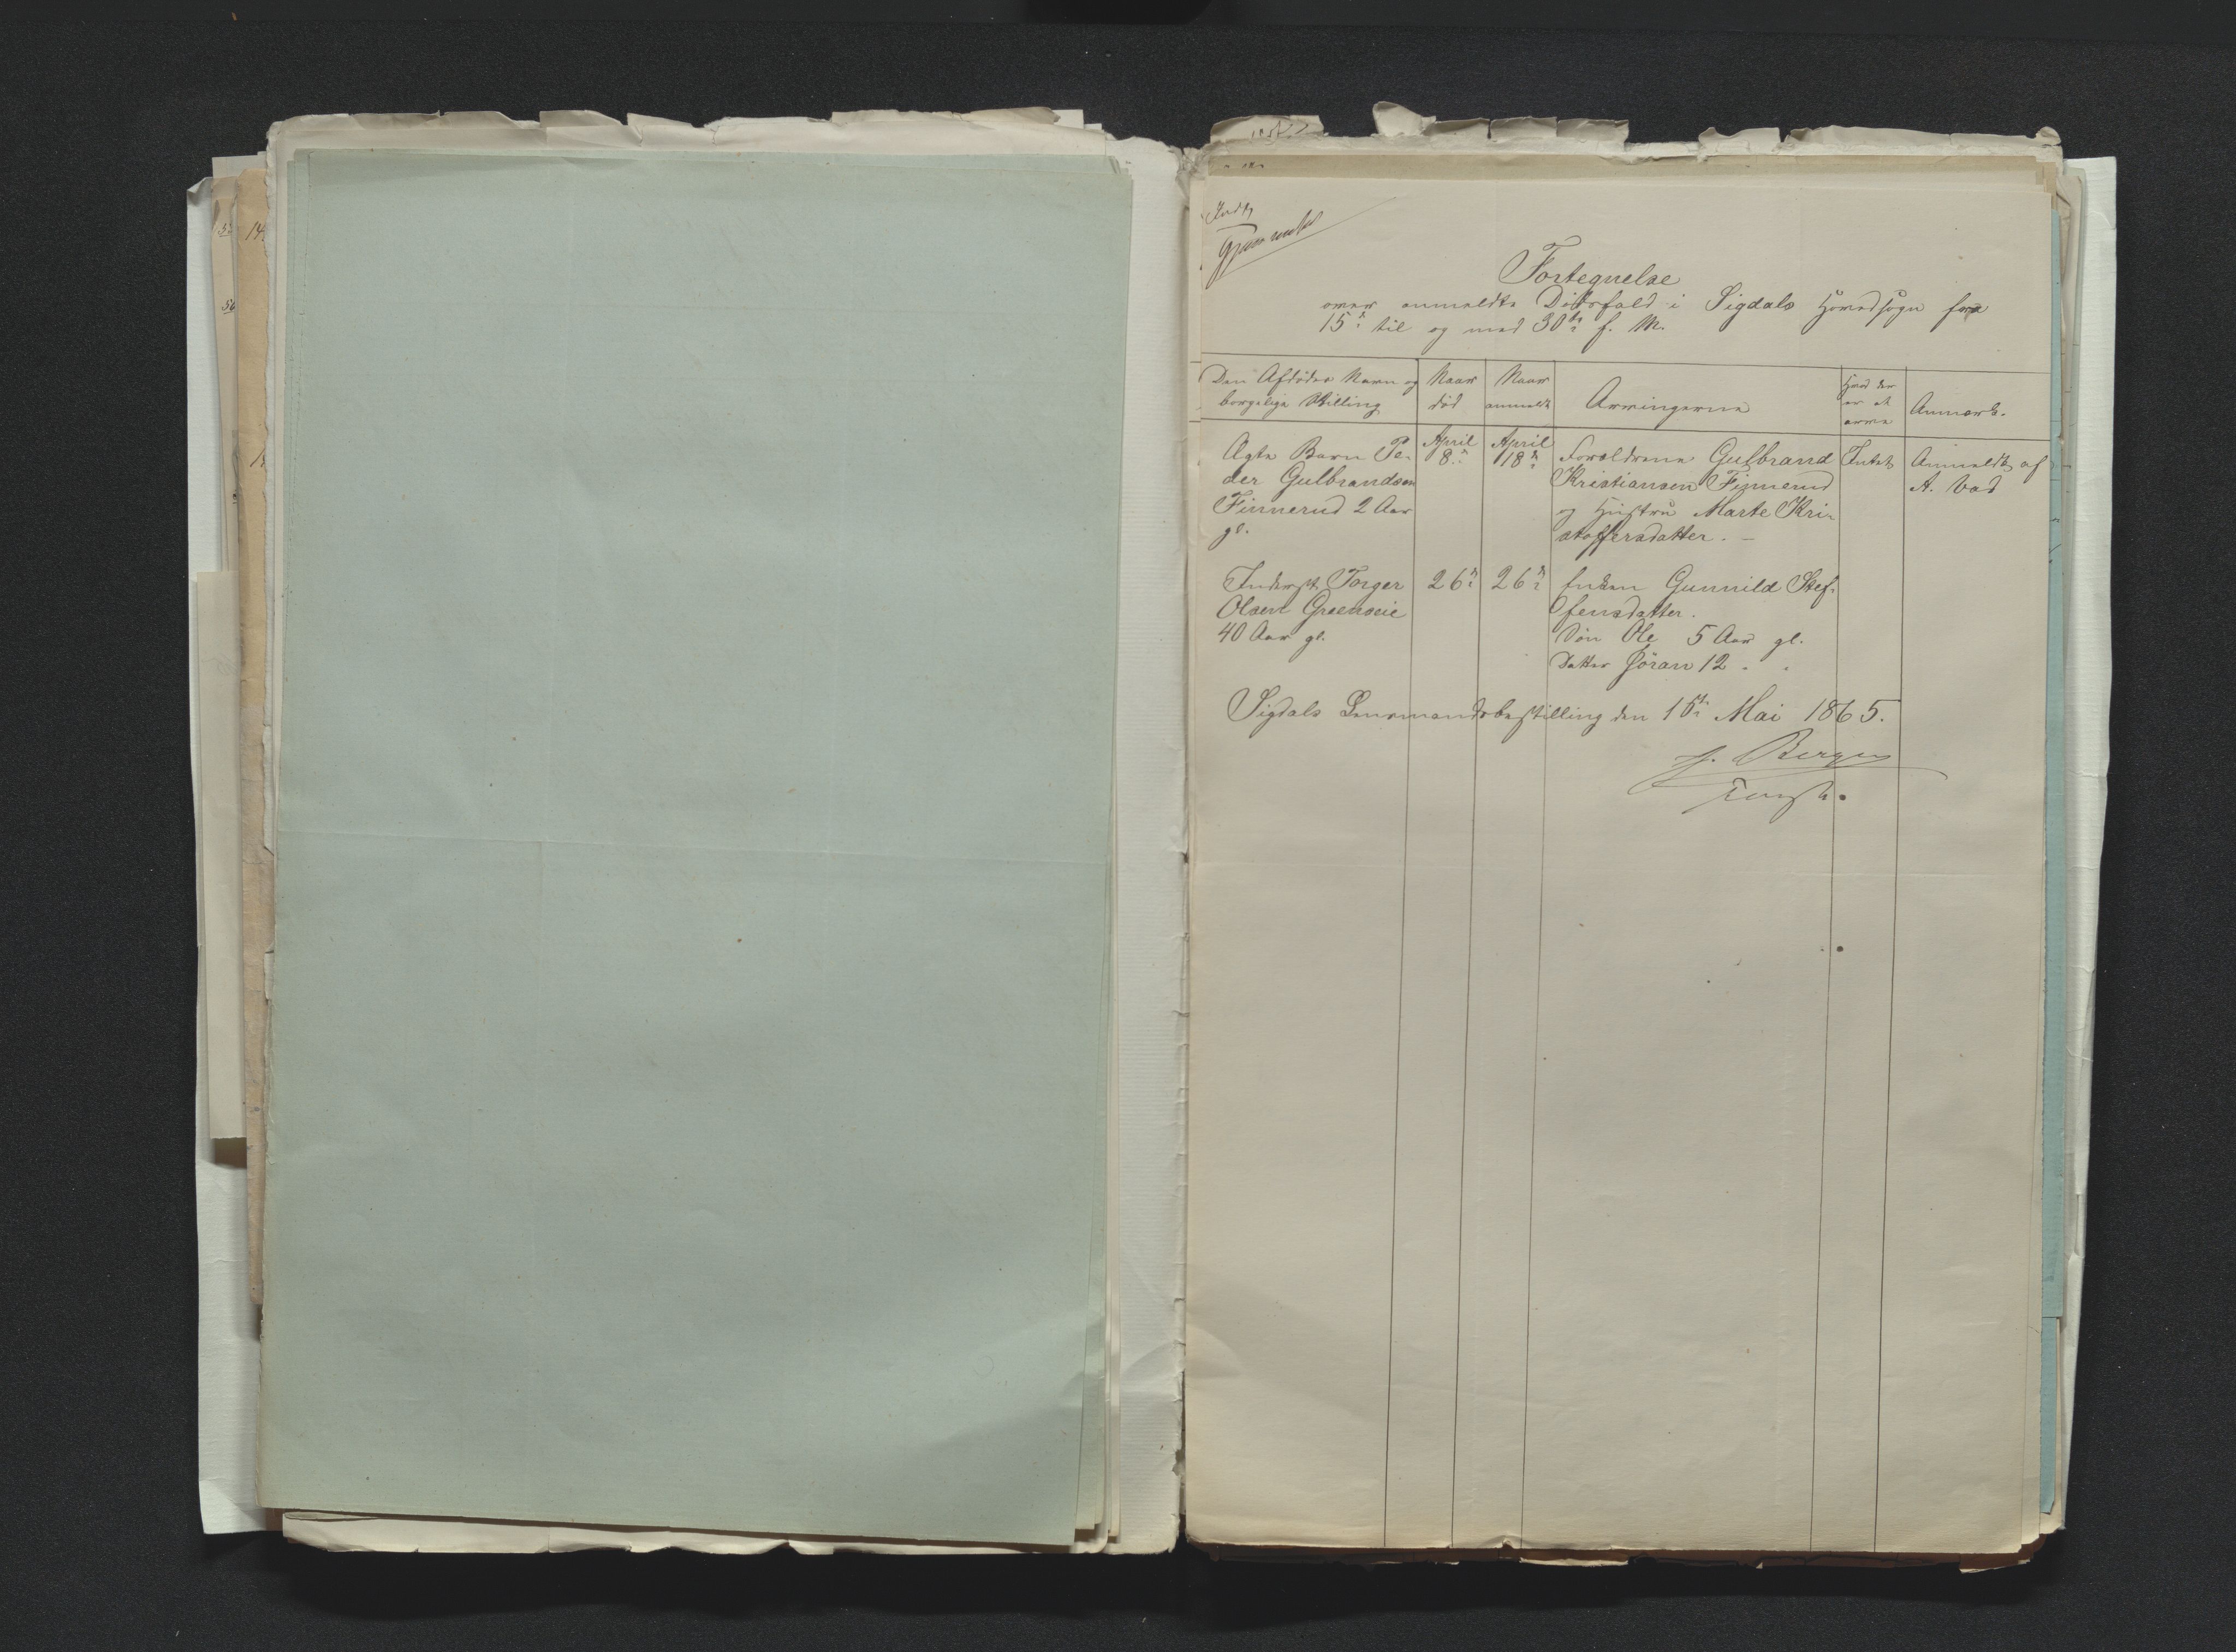 Indf
Fortegnelse
over anmeldte Dødsfald i Sigdals Hovedsogn fra
15de til og med 30te f. M.
Den Afdødes Navn og
borgelige Stilling
Naar
død
Naar
anmeldt
Arvingerne
Hvad der
er at
arve
Anmærk.
Ægte Barn Pe-
der Gulbrandsen
Finnerud 2 Aar
gl.
April
8de
April
18de
Forældrene Gulbrand
Kristiansen Finnerud
og Hustru Marte Kri-
stoffersdatter. –
Intet
Anmeldt af
A. Vad
Inderst Torger
Olsen Greenseie
40 Aar gl.
26de
26de
Enken Gunnild Stef-
fensdatter.
Søn Ole 5 Aar gl.
Datter Jöran 12 " "
Sigdals Lensmandsbestilling den 15de Mai 1865.
Berger